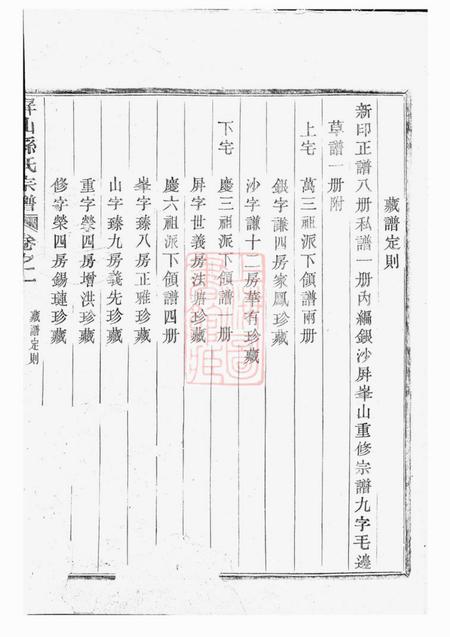 藏譜定則
新印正譜八册私譜一册內編銀沙屏峯山重修宗譜九字毛邊
草譜一册附
上宅　萬三祖派下領譜兩册
銀字謙四房家鳳珍藏
沙字謙十二房華有珍藏
下宅　慶三祖派下領譜　册
屏字世義房法屏珍藏
慶六祖派下領譜四册
峯字臻八房正雅珍藏
山字臻九房義先珍藏
重字榮四房增洪珍藏
修字榮四房錫璉珍藏
屏山孫氏宗譜　卷之一　藏譜定則